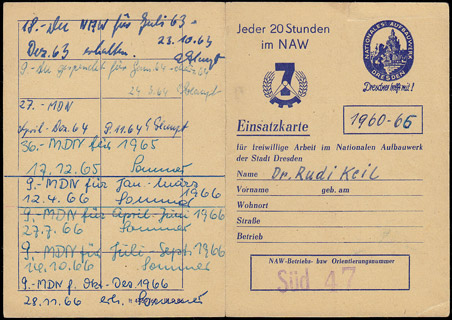 18.- DM NAW für Juli 63 -
Dez. 63 erhalten. 23.10.64
9.- DM gespendet für Jan 64 -
24.3.64
27.- MDN
April-Dez. 64 9.11.64
36.- MDN für 1965
17.12.65 Sommer
9.- MDN für Jan-März 1966
12.4.66 Sommer
9.- MDN für April-Juni 1966
27.7.66 Sommer
9.- MDN für Juli-Sept. 1966
10.66 Sommer
9.- MDN f. Okt-Dez. 1966
28.11.66 erh. Sommer
Jeder 20 Stunden
im NAW
NATIONALES AUFBAUWERK
DRESDEN
Dresdner helft mit!
7
Einsatzkarte
1960-66
für freiwillige Arbeit im Nationalen Aufbauwerk
der Stadt Dresden
Name Dr. Rudi Keil
Vorname geb. am
Wohnort
Straße
Betrieb
NAW-Betriebs- bzw Orientierungsnummer
Süd 47